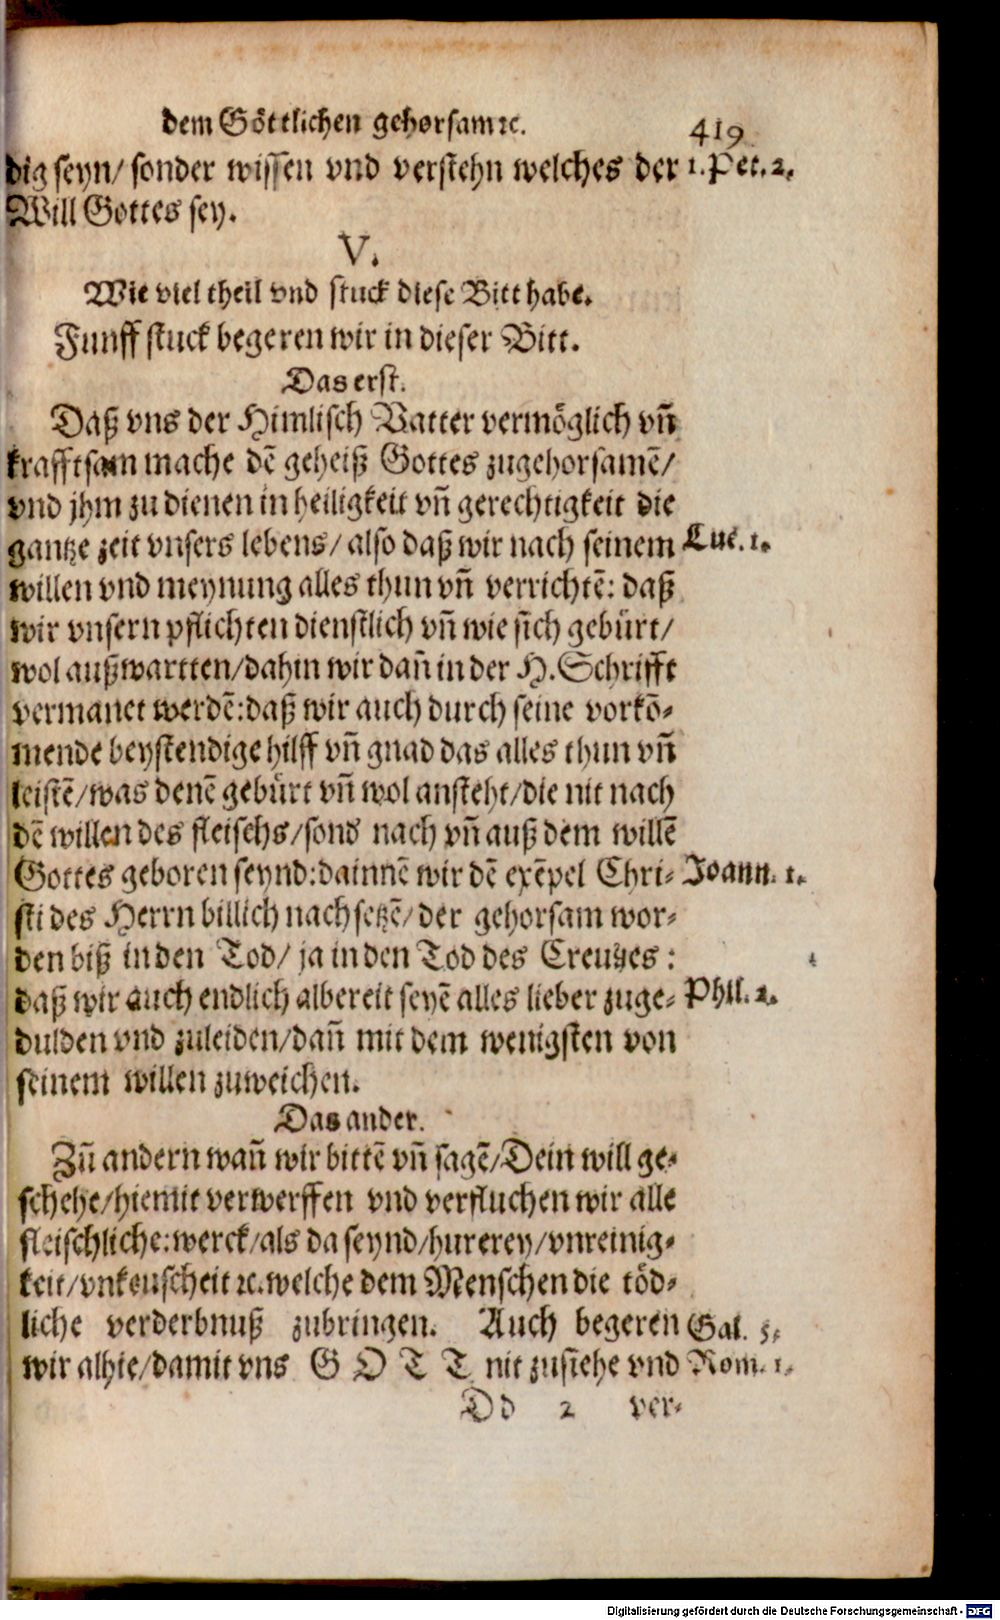 dem Göttlichen gehorsam ꝛc. 419
dig seyn/ sonder wissen vnd verstehn welches der 1. Pet. 2.
Will Gottes sey.
V.
Wie viel theil vnd stuck diese Bitt habe.
Funff stuck begeren wir in dieser Bitt.
Das erst.
Daß vns der Himlisch Vatter vermöglich vñ
krafftsam mache dē geheiß Gottes zugehorsamē/
vnd jhm zu dienen in heiligkeit vñ gerechtigkeit die
gantze zeit vnsers lebens/ also daß wir nach seinem Luc. 1.
willen vnd meynung alles thun vñ verrichtē: daß
wir vnsern pflichten dienstlich vñ wie sich gebürt/
wol außwartten/dahin wir dañ in der H. Schrifft
vermanet werdē: daß wir auch durch seine vorkō-
mende beystendige hilff vñ gnad das alles thun vñ
leistē/was denē gebürt vñ wol ansteht/die nit nach
dē willen des fleischs/sond nach vñ auß dem willē
Gottes geboren seynd: dainnē wir dē exēpel Chri- Joann. 1.
sti des Herrn billich nachsetzē/ der gehorsam wor-
den biß in den Tod/ ja in den Tod des Creutzes:
daß wir auch endlich albereit seyē alles lieber zuge- Phil. 2.
dulden vnd zuleiden/dañ mit dem wenigsten von
seinem willen zuweichen.
Das ander.
Zū andern wañ wir bittē vñ sagē/Dein will ge-
schehe/hiemit verwerffen vnd verfluchen wir alle
fleischliche: werck/als da seynd/hurerey/vnreinig-
keit/vnkeuscheit ꝛc. welche dem Menschen die töd-
liche verderbnuß zubringen. Auch begeren Gal. 5.
wir alhie/damit vns GOTT nit zustehe vnd Rom. 1.
Dd 2 ver-
Digitalisierung gefördert durch die Deutsche Forschungsgemeinschaft - DFG